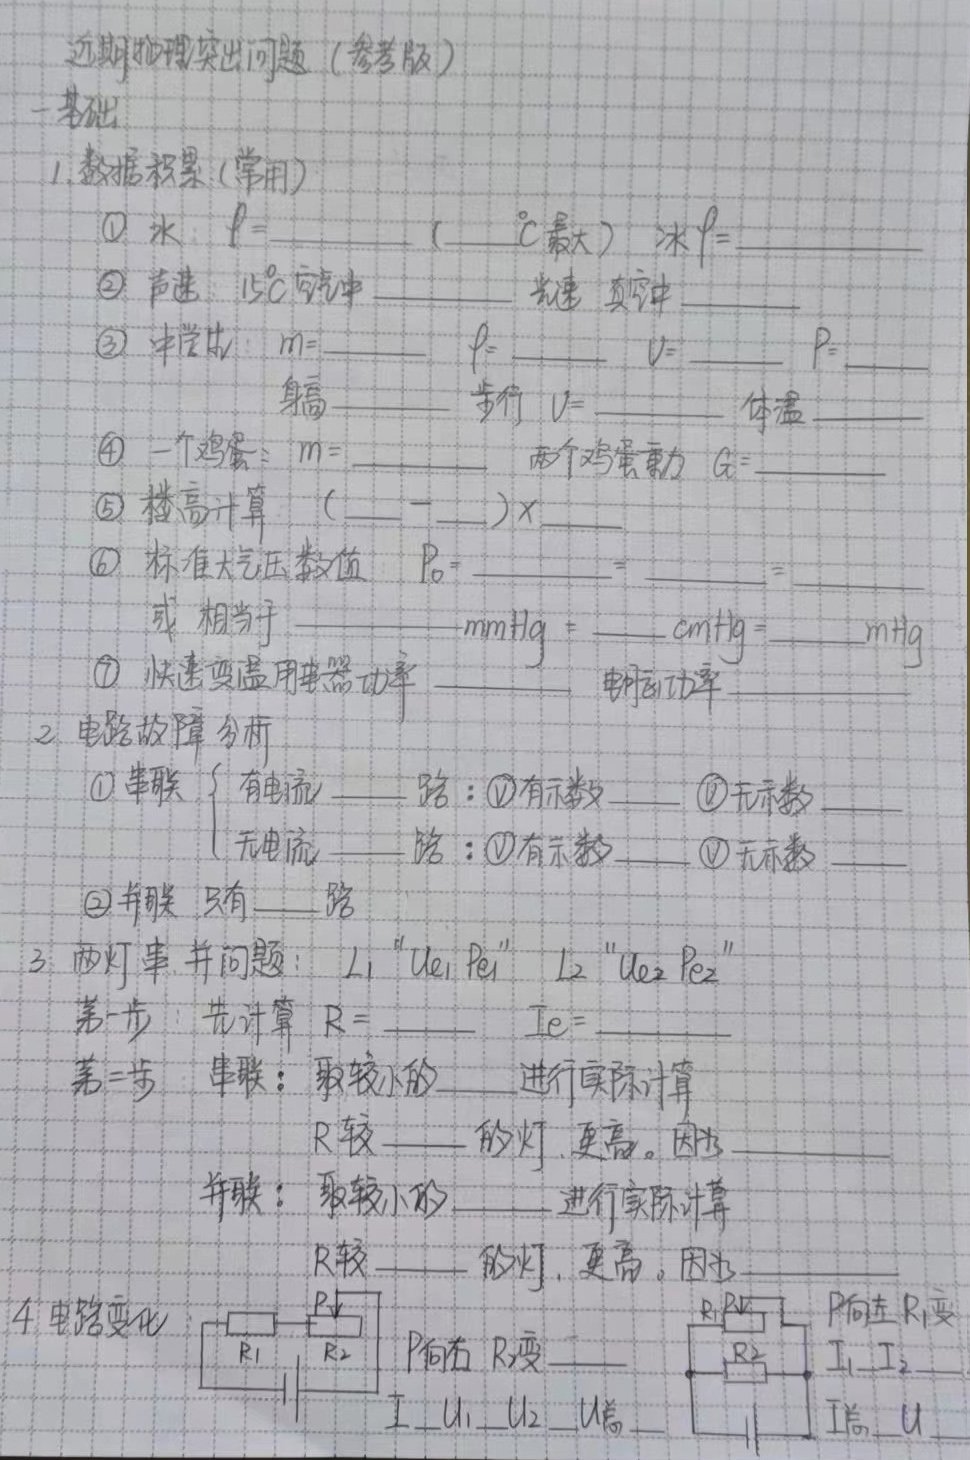 近期物理突出问题（参考版）
一基础
1.数据积累（常用）
① 水: ρ=______（____℃最大） 冰ρ=______
② 声速 15℃空气中______ 光速 真空中______
③ 中学生: m=______ ρ=______ V=______ P=____
身高______ 步行 V=______ 体温______
④ 一个鸡蛋: m=______ 两个鸡蛋重力 G=______
⑤ 楼高计算 (____-____)×____
⑥ 标准大气压数值 P₀=______=______=______
或 相当于______mmHg=____cmHg=____mHg
⑦ 快速变温用电器功率______ 电脑功率______
2 电路故障分析
①串联 { 有电流____路: Ⓥ有示数____ Ⓥ无示数____
无电流____路: Ⓥ有示数____ Ⓥ无示数____
②并联 只有____路
3 两灯串并问题: L₁ "Ue₁ Pe₁" L₂ "Ue₂ Pe₂"
第一步: 先计算 R=____ Ie=______
第二步 串联: 取较小的____进行实际计算
R较____的灯,更亮。因为______
并联: 取较小的____进行实际计算
R较____的灯,更亮。因为______
4 电路变化:
P R₁ R₂
P向右 R₂变____
I__U₁__U₂__U总__
R₁ P R₂
P向左 R₁变
I₁__I₂__
I总__U__